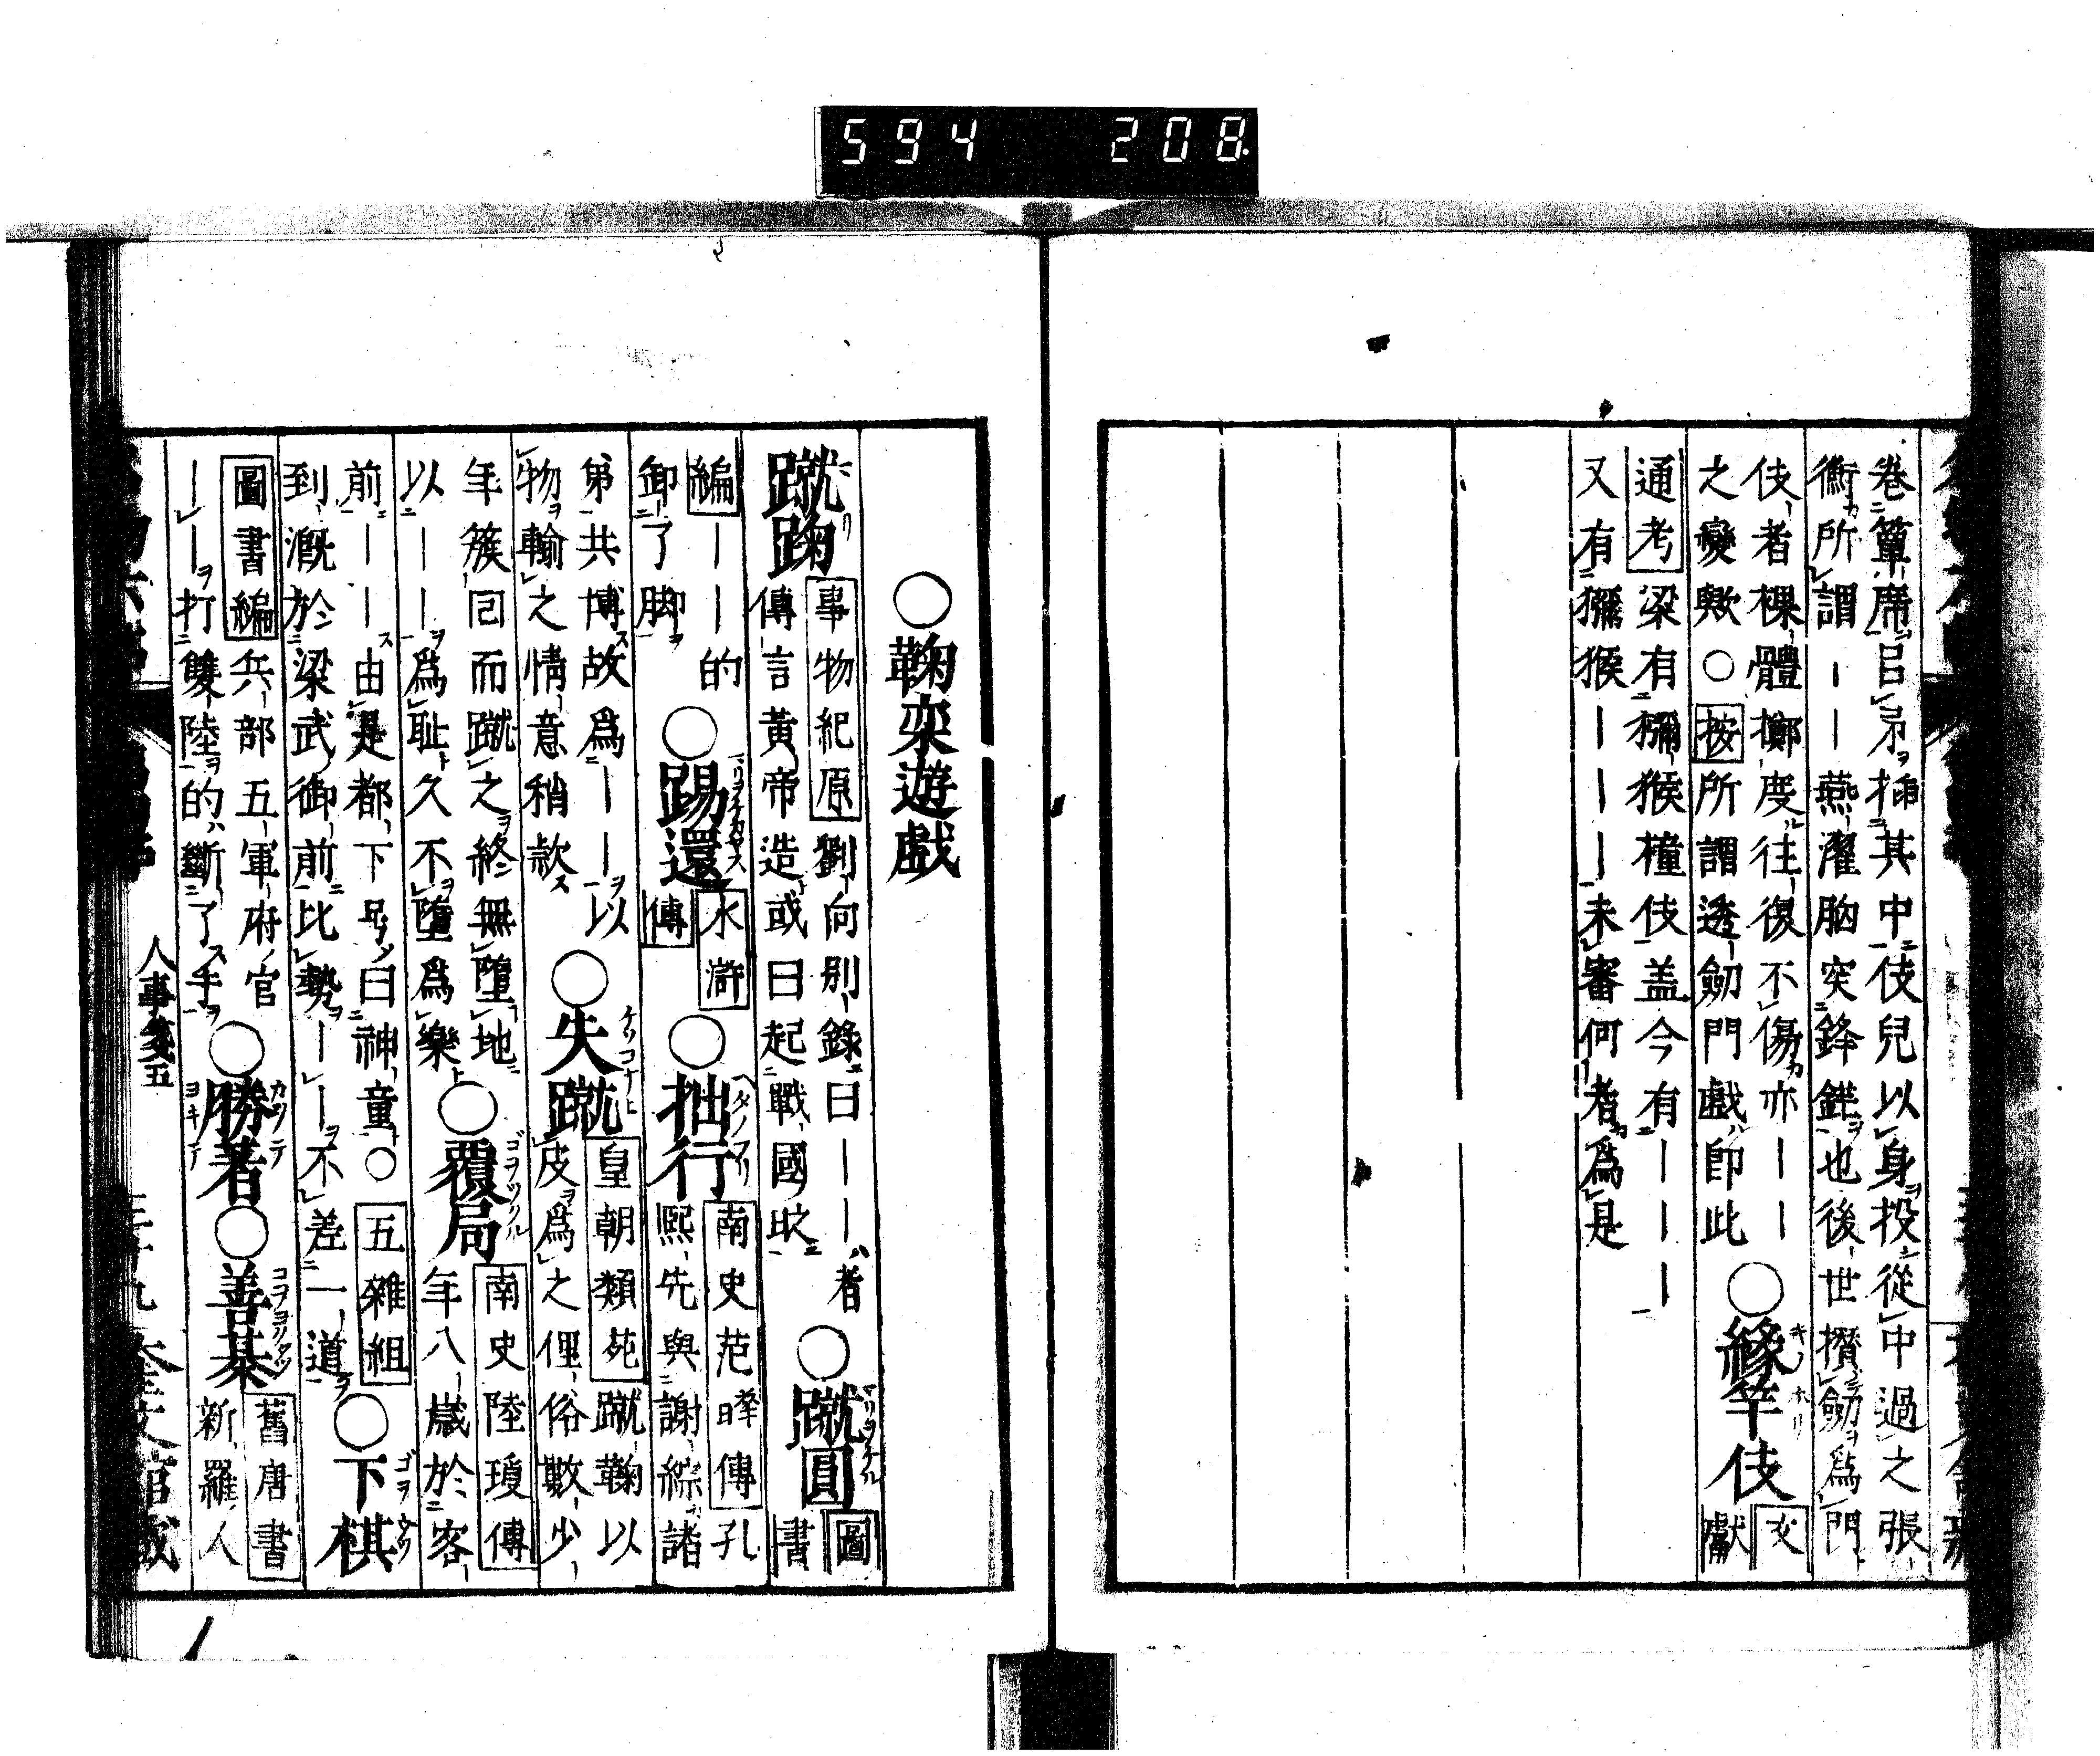 594 208
卷簟席曰弟挿其中伎兒以身投從中過之張
衡所謂｜｜燕濯胸突鋒鋩也後世攢劒爲門
伎者裸體擲度往復不傷亦｜｜
之變歟○按所謂透劒門戲即此
○緣竿伎 文獻
通考梁有獼猴橦伎盖今有｜｜｜
又有獼猴｜｜｜未審何者爲是
○鞠奕遊戲
蹴踘 事物紀原劉向別錄曰｜｜者
傳言黃帝造或曰起戰國时
○蹴圓 圖書
編｜｜的
○踢還 水滸傳
卸了脚
○拙行 南史范曄傳孔
熙先與謝綜諸
第共博故爲｜｜以
物輸之情意稍款
○失蹴 皇朝類苑蹴鞠以
皮爲之俚俗數少
年簇囘而蹴之終無墮地
以｜｜爲耻久不墮爲樂
○覆局 南史陸瓊傳
年八歲於客
前｜｜由是都下号曰神童○五雜組
到漑於梁武御前比勢｜｜不差一道
○下棋
圖書編兵部五軍府官
｜｜打雙陸的斷了手
○勝著
○善棊 舊唐書
新羅人
人事箋五